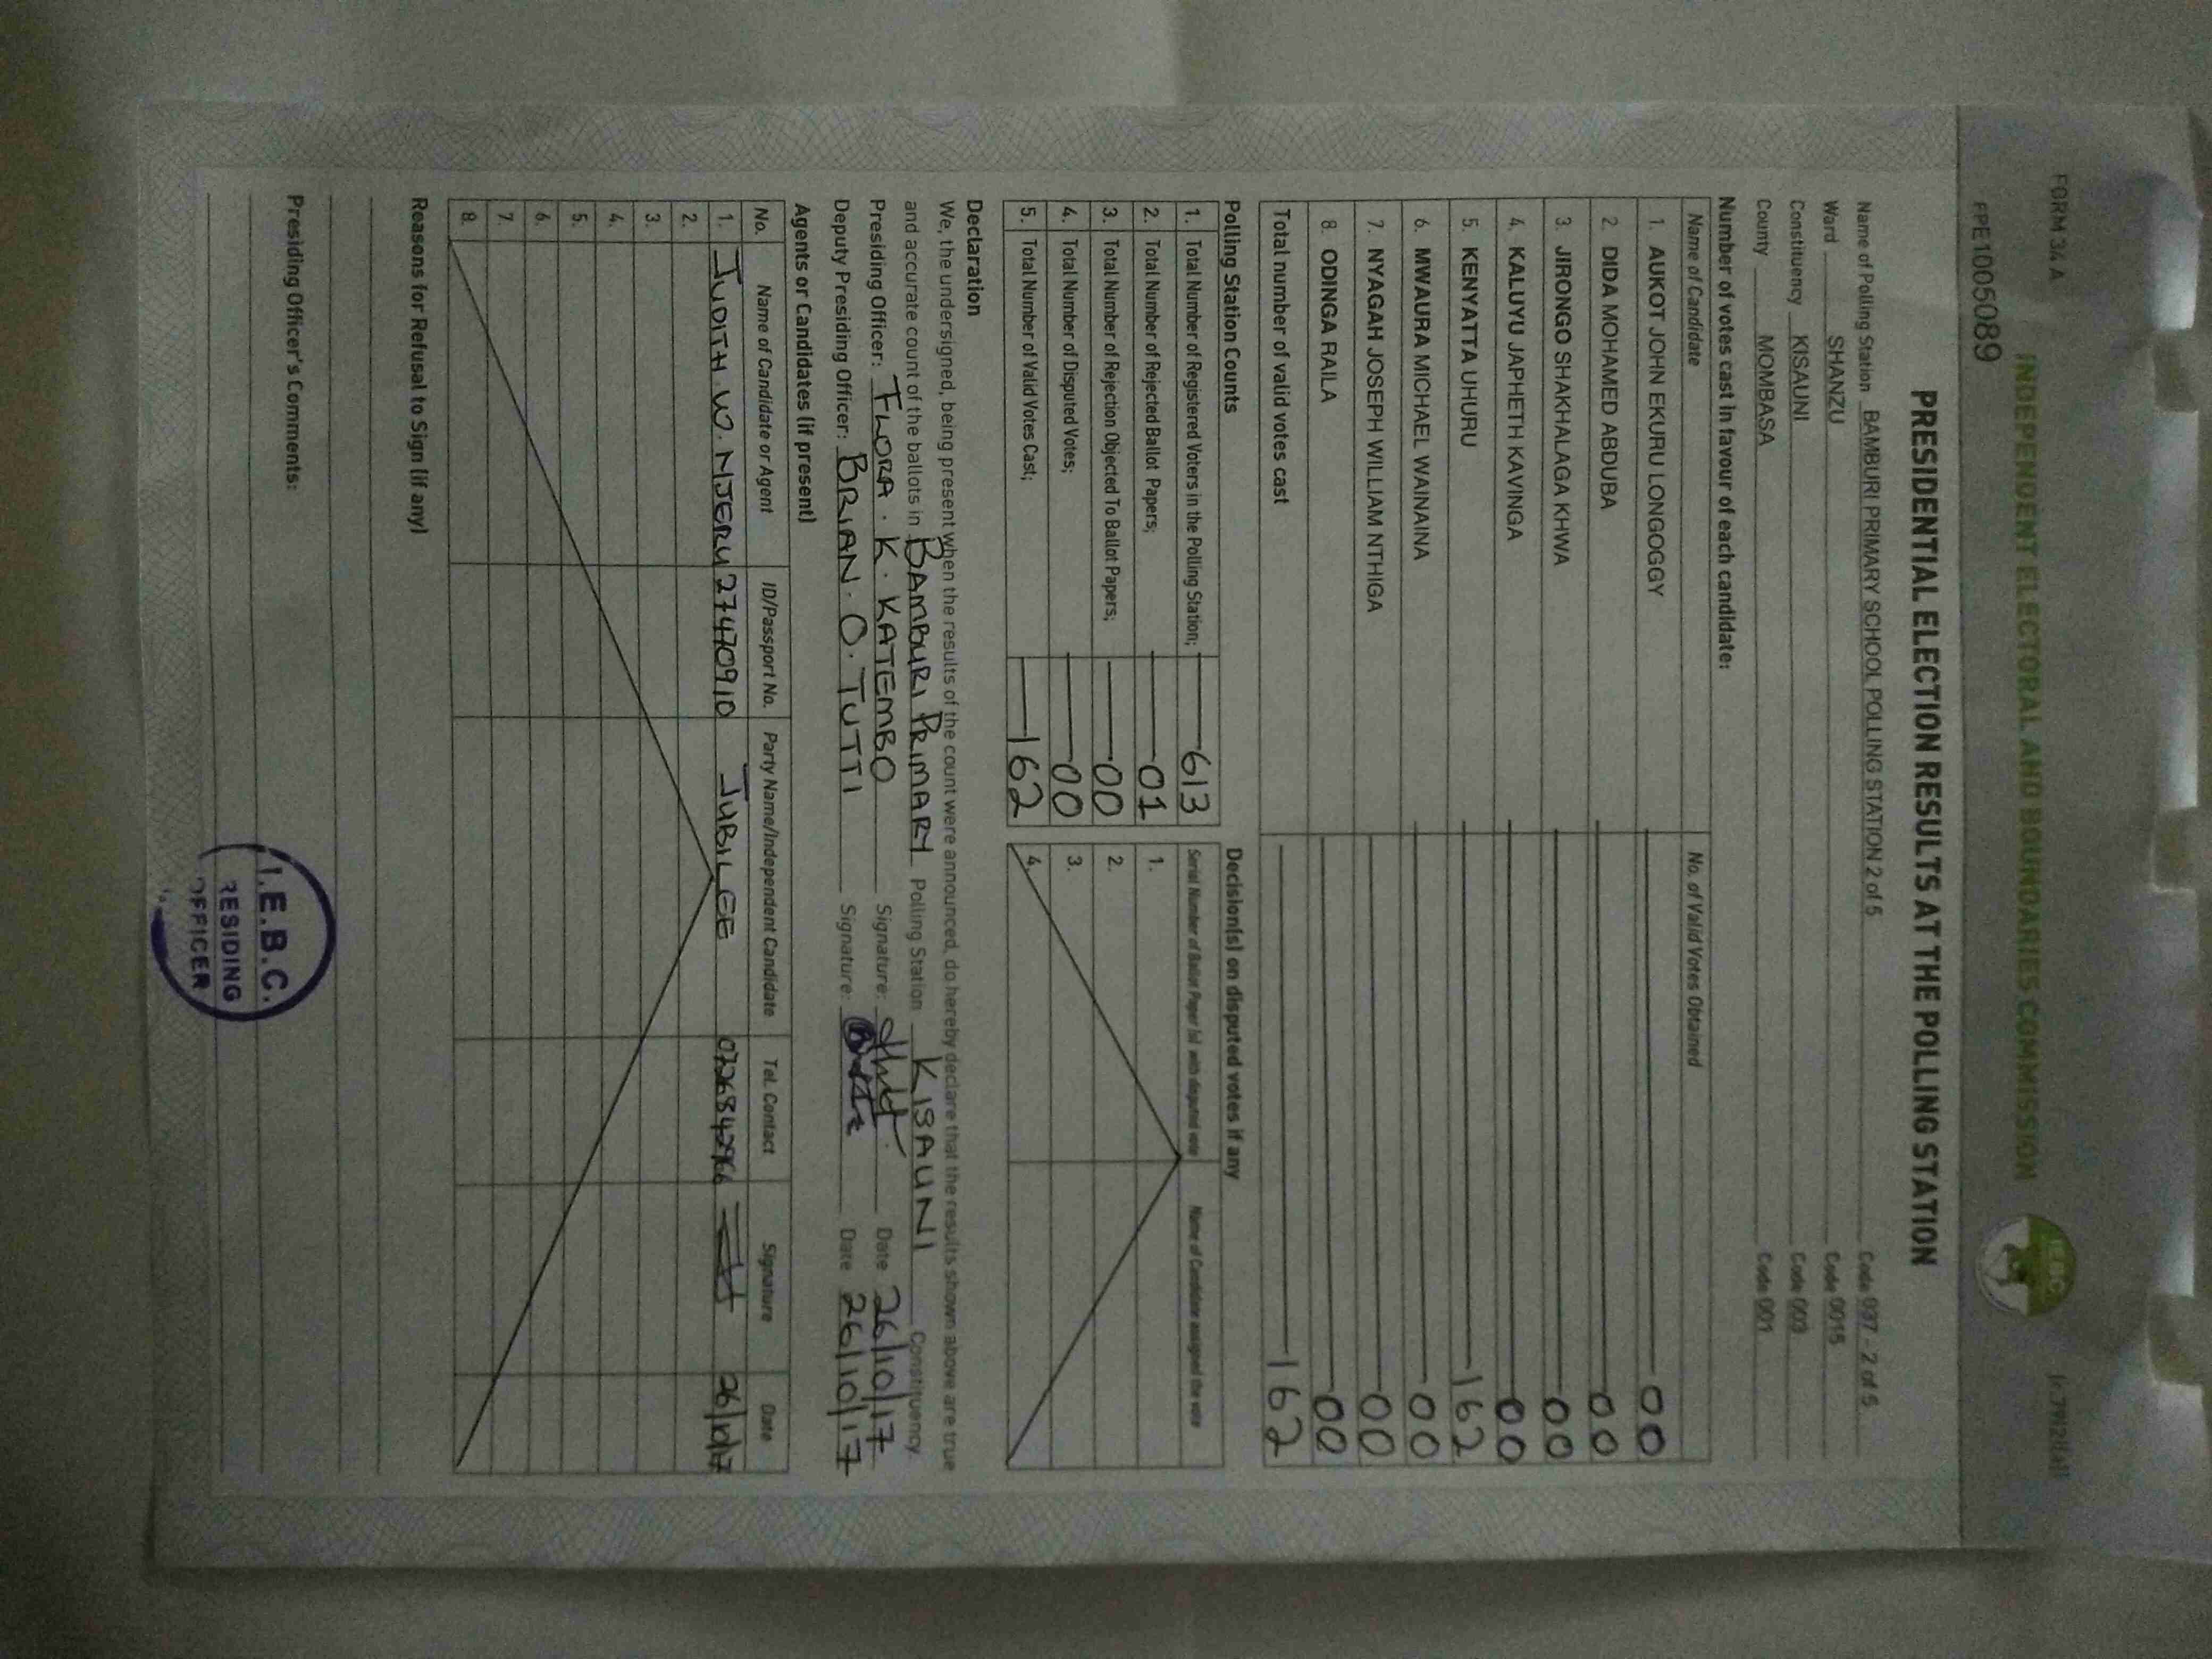 FORM 34 A
INDEPENDENT ELECTORAL AND BOUNDARIES COMMISSION
PPE1005089
PRESIDENTIAL ELECTION RESULTS AT THE POLLING STATION
Name of Polling Station BAMBURI PRIMARY SCHOOL POLLING STATION 2 of 5 Code 037 - 2 of 5
Ward SHANZU Code 0015
Constituency KISAUNI Code 003
County MOMBASA Code 001
Number of votes cast in favour of each candidate:
Name of Candidate No. of Valid Votes Obtained
1. AUKOT JOHN EKURU LONGOGGY 00
2. DIDA MOHAMED ABDUBA 00
3. JIRONGO SHAKHALAGA KHWA 00
4. KALUYU JAPHETH KAVINGA 00
5. KENYATTA UHURU 162
6. MWAURA MICHAEL WAINAINA 00
7. NYAGAH JOSEPH WILLIAM NTHIGA 00
8. ODINGA RAILA 00
Total number of valid votes cast 162
Polling Station Counts
1. Total Number of Registered Voters in the Polling Station; 613
2. Total Number of Rejected Ballot Papers; 01
3. Total Number of Rejection Objected To Ballot Papers; 00
4. Total Number of Disputed Votes; 00
5. Total Number of Valid Votes Cast; 162
Decision(s) on disputed votes if any
Serial Number of Ballot Paper (s) with disputed vote Name of Candidate assigned the vote
1.
2.
3.
4.
Declaration
We, the undersigned, being present when the results of the count were announced, do hereby declare that the results shown above are true
and accurate count of the ballots in BAMBURI PRIMARY Polling Station KISAUNI Constituency.
Presiding Officer: FLORA . K . KATEMBO Signature: Date 26/10/17
Deputy Presiding Officer: BRIAN . O . TUTTI Signature: Date 26/10/17
Agents or Candidates (if present)
No. Name of Candidate or Agent ID/Passport No. Party Name/Independent Candidate Tel. Contact Signature Date
1. JUDITH .W. NJERU 27470910 JUBILEE 26/10/17
2.
3.
4.
5.
6.
7.
8.
Reasons for Refusal to Sign (if any)
Presiding Officer's Comments:
I.E.B.C.
RESIDING
OFFICER